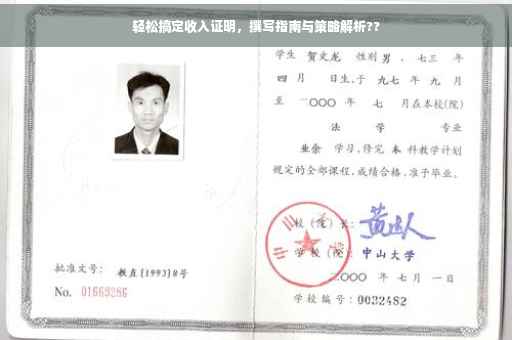 轻松搞定收入证明，撰写指南与策略解析??
学生 贺文龙 性别 男，七三 年
四 月 日生,于 九七 年 九 月
至 二〇〇〇 年 七 月在本校(院)
法 学 专业
业余 学习,修完 本 科教学计划
规定的全部课程,成绩合格,准予毕业。
校（院）长：
学校（院）：中山大学
二〇〇〇 年 七 月 一 日
批准文号：教直[1993]8号
No. 01669286
学校编号：0032482